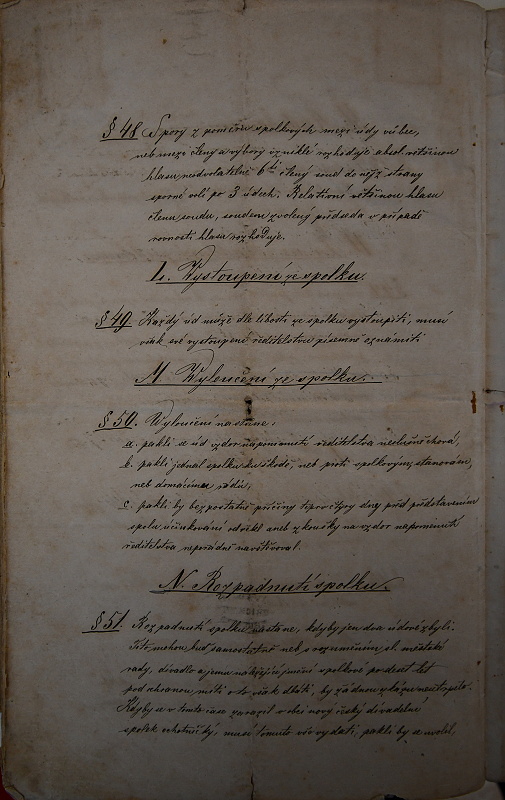 § 48. Spory z poměru spolkových mezi údy vůbec,
neb mezi členy a výbory vzniklé rozhoduje absol. většinou
hlasu neodvolatelně 6ti členný soud do nějž strany
sporné volí po 3 údech. Relativní většinou hlasu
členu soudu, soudem zvolený předseda v případě
rovnosti hlasu rozhoduje.
L. Vystoupení ze spolku.
§ 49. Každý úd může dle libosti ze spolku vystoupiti, musí
však své vystoupení ředitelstvu písemně oznámiti
M. Vyloučení ze spolku.
§ 50. Vyloučení nastane:
a. pakli se úd vzdor napomenutí ředitelstva neslušně chová,
b. pakli jednal spolku ku škodě, neb proti spolkovým stanovám,
neb domácímu řádu,
c. pakli by bez podstatné příčiny čtyry dny před představením
spolu účinkování odřekl aneb zkoušky na vzdor napomenutí
ředitelstva nepořádně navštěvoval.
N. Rozpadnutí spolku.
§ 51. Rozpadnutí spolku nastane, kdyby jen dva údové zbyli.
Tito mohou buď samostatně neb s rozuměním sl. městské
rady, divadlo a jemu náležející jmění spolkové po deset let
pod ochranou míti a to však dbáti, by žádnou zkázu neutrpělo.
Kdyby se v tomto čase zarazil v obci nový český divadelní
spolek ochotnický, musí tomuto vše vydati, pakli by se uvolil,